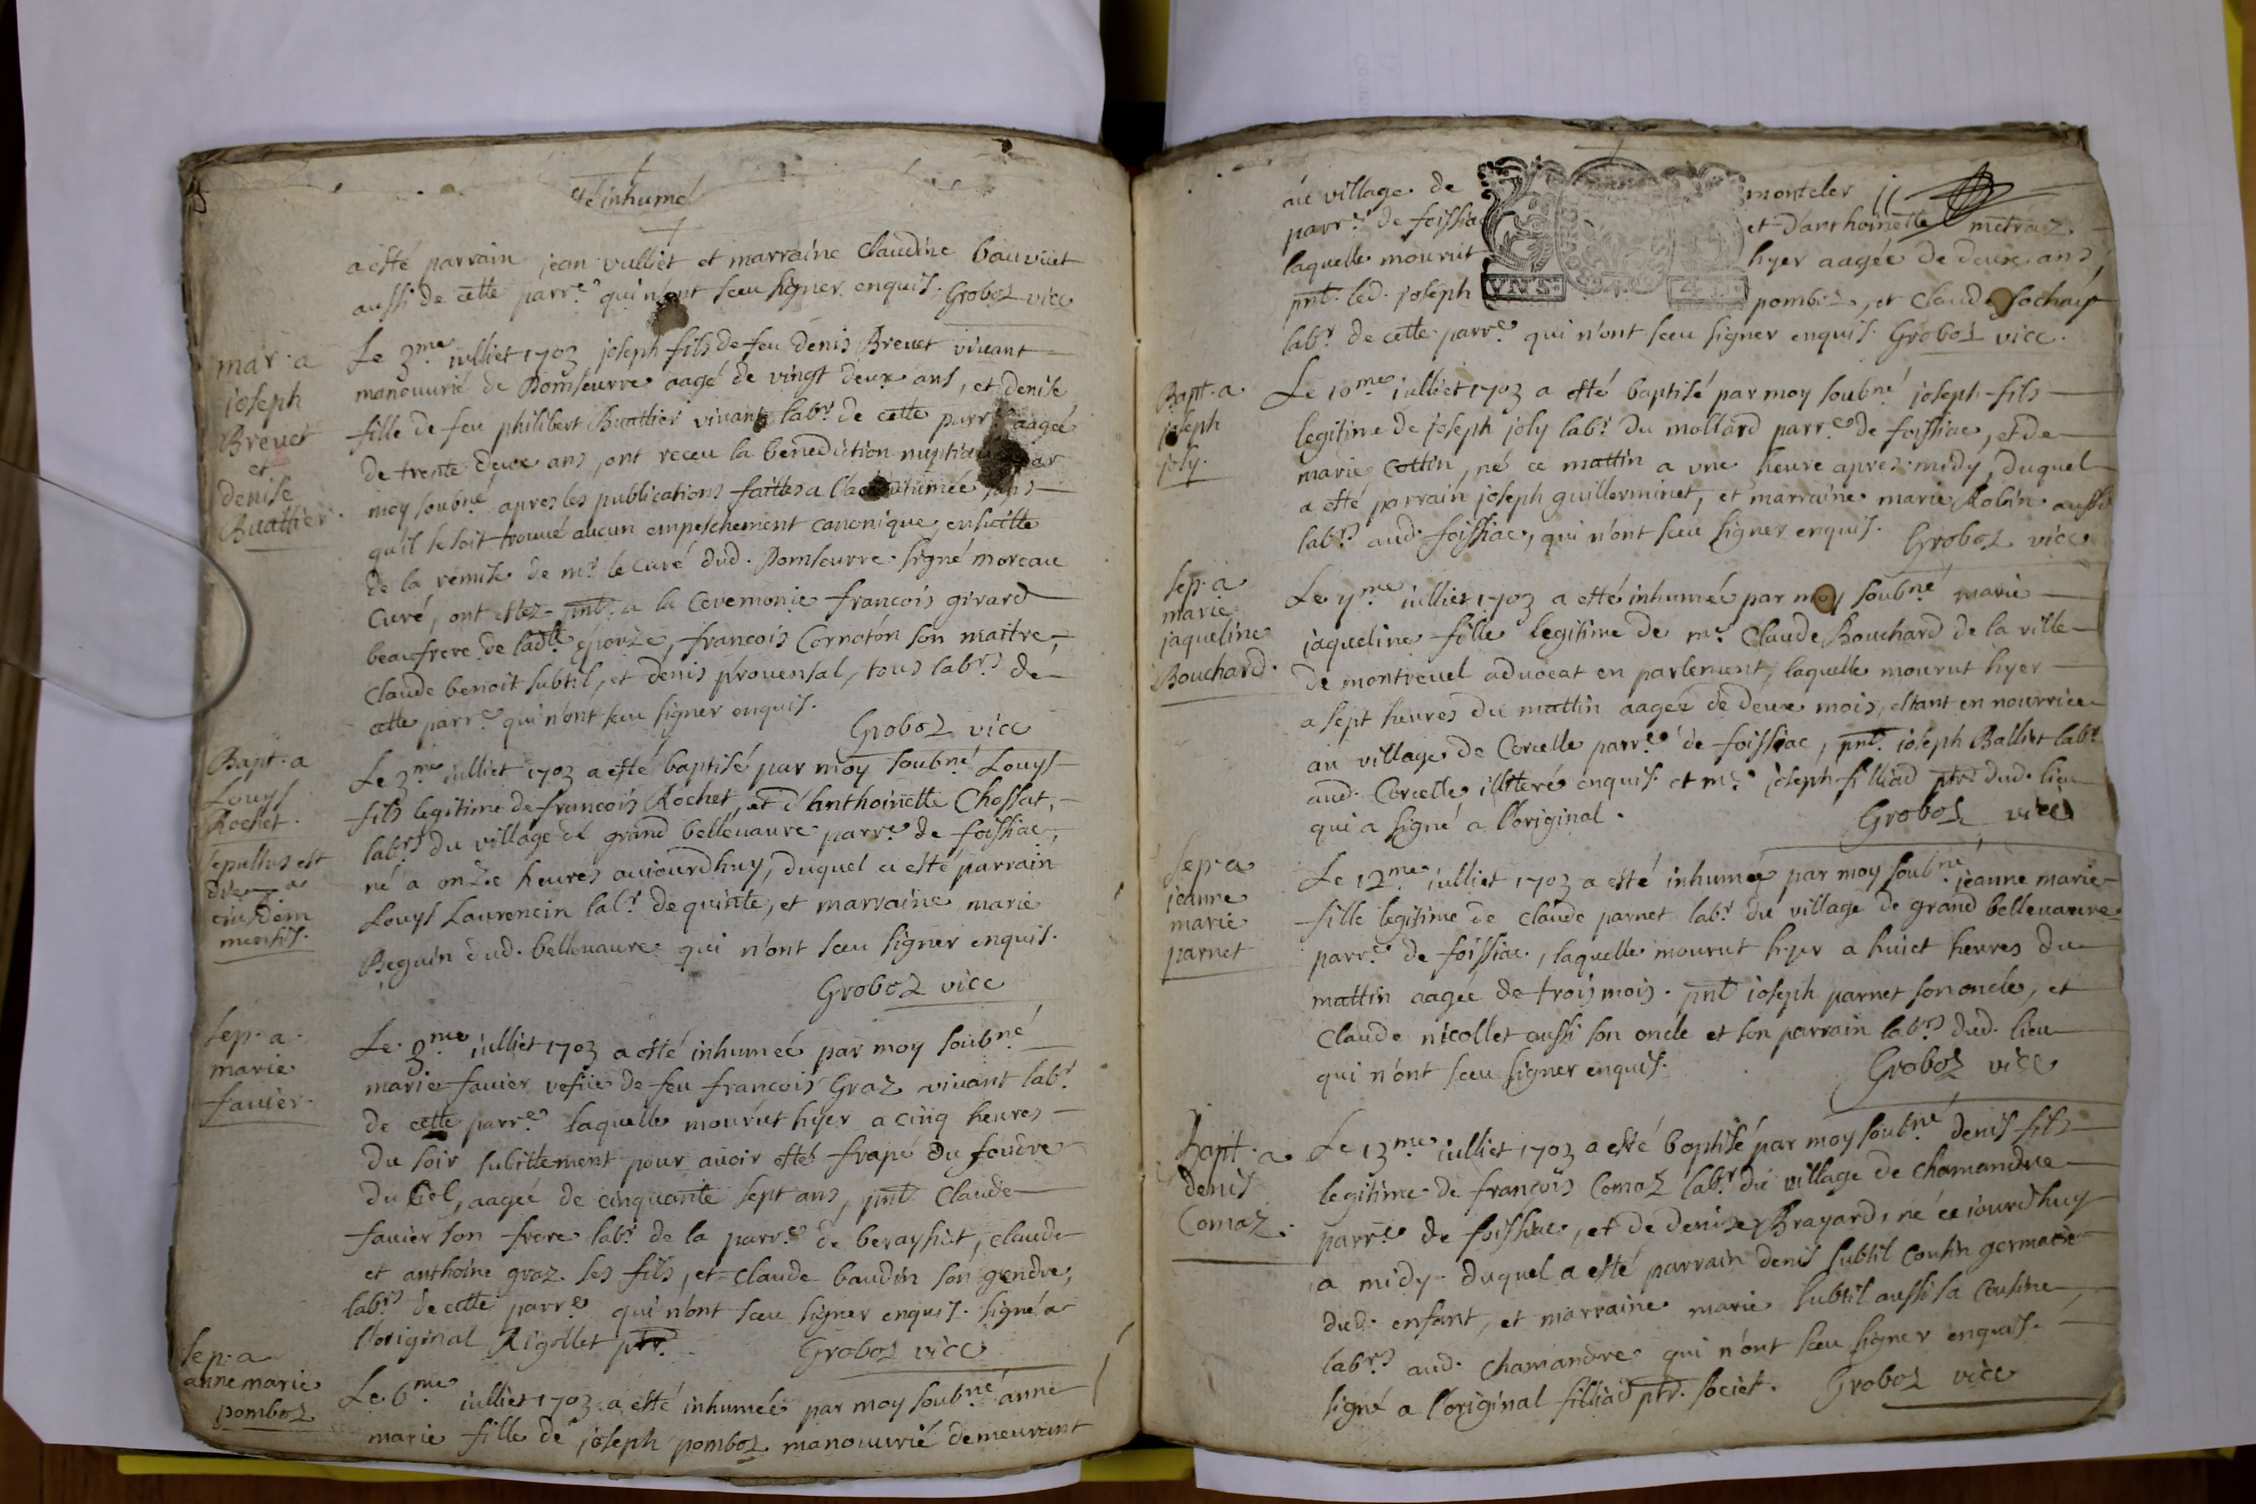 été inhumé
a esté parrain jean vulliet et marraine Claudine bauvuet
aussi de cette parr.e qui n'ont sceu signer enquis. Groboz vice
mar. a
joseph
Brevet
et
denise
Buattier.
Le 3.me iulliet 1703 joseph fils de feu denis Brevet vivant
manouvrié de Domseurre aagé de vingt deux ans, et denise
fille de feu philibert Buattier vivant lab.r de cette parr.e aagée
de trente deux ans, ont receu la benediction nuptiale par
moy soub.né apres les publications faittes a l'accoutumée sans
qu'il se soit trouvé aucun empeschement canonique ensuitte
de la remise de m.r le curé dud. Domseurre signé moreau
curé, ont estez pnt. a la Ceremonie francois girard
beaufrere de lad.te épouze, francois Cornoton son maitre,
Claude benoit subtil, et denis provensal, tous lab.rs de
cette parr.e qui n'ont sceu signer enquis.
Groboz vice
Bapt. a
Louys
Rochet.
sepultus est
die 7.a
eiusdem
mensis.
Le 3.me iulliet 1703 a esté baptisé par moy soub.né Louys
fils legitime de francois Rochet, et d'Anthoinette Chossat,
lab.rs du village de grand bellevaure parr.e de foissiac,
né a onze heures auiourdhuy, duquel a esté parrain
Louys Laurencin lab.r de quinte, et marraine marie
Beguin dud. bellevaure qui n'ont sceu signer enquis.
Groboz vice
sep. a
marie
favier.
Le 3.me iulliet 1703 a esté inhumeé par moy soub.né
marie favier vefue de feu francois Graz vivant lab.r
de cette parr.e laquelle mourut hyer a cinq heures
du soir subittement pour avoir esté frapé du foudre
du Ciel, aagée de cinquante sept ans, pnt. Claude
favier son frere lab.r de la parr.e de beraysiat, claude
et anthoine graz ses fils, et Claude baudin son gendre,
lab.rs de cette parr.e qui n'ont sceu signer enquis. signé a
l'original Rigollet ptr.
Groboz vice
sep. a
anne marie
pomboz
Le 6.me iulliet 1703 a esté inhumeé par moy soub.né anne
marie fille de joseph pomboz manouvrié demeurant
au village de monteler
parr.e de foissiac et d'anthoinette metraz
laquelle mourut hyer aagée de deux ans,
pnt. led. joseph pomboz, et Claude
VNS. 4.D.
lab.r de cette parr.e qui n'ont sceu signer enquis. Groboz vice.
Bapt. a
joseph
joly.
Le 10.me iulliet 1703 a esté baptisé par moy soub.né joseph fils
legitime de joseph joly lab.r du mollard parr.e de foissiac, et de
marie Cottin, né ce mattin a une heure apres midy, duquel
a esté parrain joseph guillerminet, et marraine marie Robin aussi
lab.rs aud. foissiac, qui n'ont sceu signer enquis.
Groboz vice
sep. a
marie
jaqueline
Bouchard.
Le 11.me iulliet 1703 a esté inhumée par moy soub.né marie
jaqueline fille legitime de m.e Claude Bouchard de la ville
de montrevel advocat en parlement, laquelle mourut hyer
a sept heures du mattin aagée de deux mois, estant en nourrice
au village de Corcelle parr.e de foissiac, pnt. joseph Balliet lab.r
aud. Corcelle illiteré enquis et m.e joseph filliad ptr. dud. lieu
qui a signé a l'original.
Groboz vice
sep. a
jeanne
marie
parnet
Le 12.me iulliet 1703 a esté inhumée par moy soub.né jeanne marie
fille legitime de Claude parnet lab.r du village de grand bellevaure
parr.e de foissiac, laquelle mourut hyer a huict heures du
mattin aagée de trois mois. pnt. joseph parnet son oncle, et
Claude nicollet aussi son oncle et son parrain lab.rs dud. lieu
qui n'ont sceu signer enquis.
Groboz vice
Bapt. a
denis
Comaz.
Le 13.me iulliet 1703 a esté baptisé par moy soub.né denis fils
legitime de francois Comaz lab.r du village de Chamandre
parr.e de foissiac, et de denise Brayard, né ce iourdhuy
a midy. duquel a esté parrain denis subtil cousin germain
dud. enfant, et marraine marie subtil aussi sa cousine,
lab.rs aud. Chamandre qui n'ont sceu signer enquis.
signé a l'original filliad ptr. societ. Groboz vice